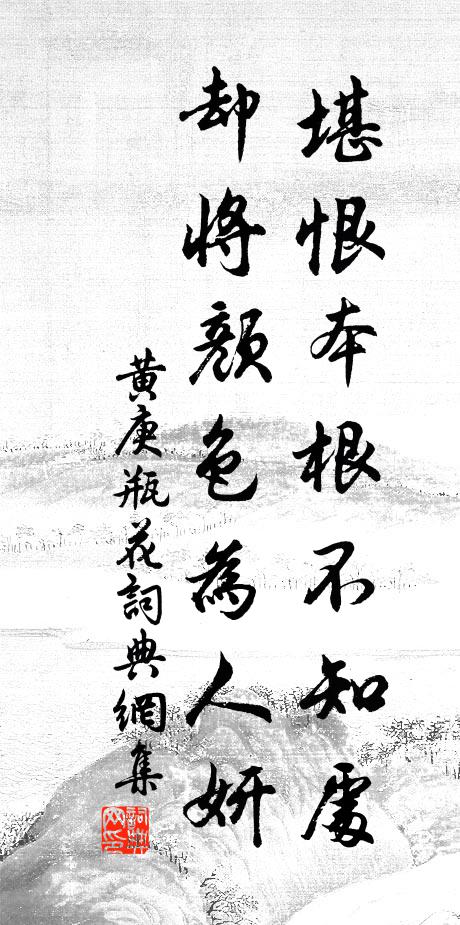 堪恨本根不知處
却將顏色為人妍
黃庚瓶花詞典網集